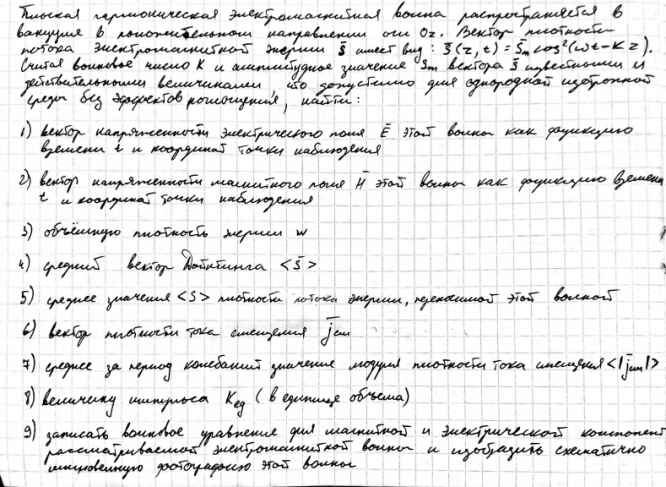 Плоская гармоническая электромагнитная волна распространяется в
вакууме в положительном направлении оси Oz. Вектор плотности
потока электромагнитной энергии S̄ имеет вид: S̄(z,t) = S̄m cos²(ωt-Kz).
Считая волновое число K и амплитудное значение Sm вектора S̄ известными и
действительными величинами, что допустимо для однородной изотропной
среды без эффектов поглощения, найти:
1) вектор напряженности электрического поля Ē этой волны как функцию
времени t и координат точки наблюдения
2) вектор напряженности магнитного поля H̄ этой волны как функцию времени
t и координат точки наблюдения
3) объёмную плотность энергии w
4) средний вектор Пойнтинга <S̄>
5) среднее значение <S> плотности потока энергии, переносимой этой волной
6) вектор плотности тока смещения j̄см
7) среднее за период колебаний значение модуля плотности тока смещения <|j̄см|>
8) величину импульса Kед (в единице объема)
9) записать волновое уравнение для магнитной и электрической компонент
рассматриваемой электромагнитной волны и изобразить схематично
мгновенную фотографию этой волны